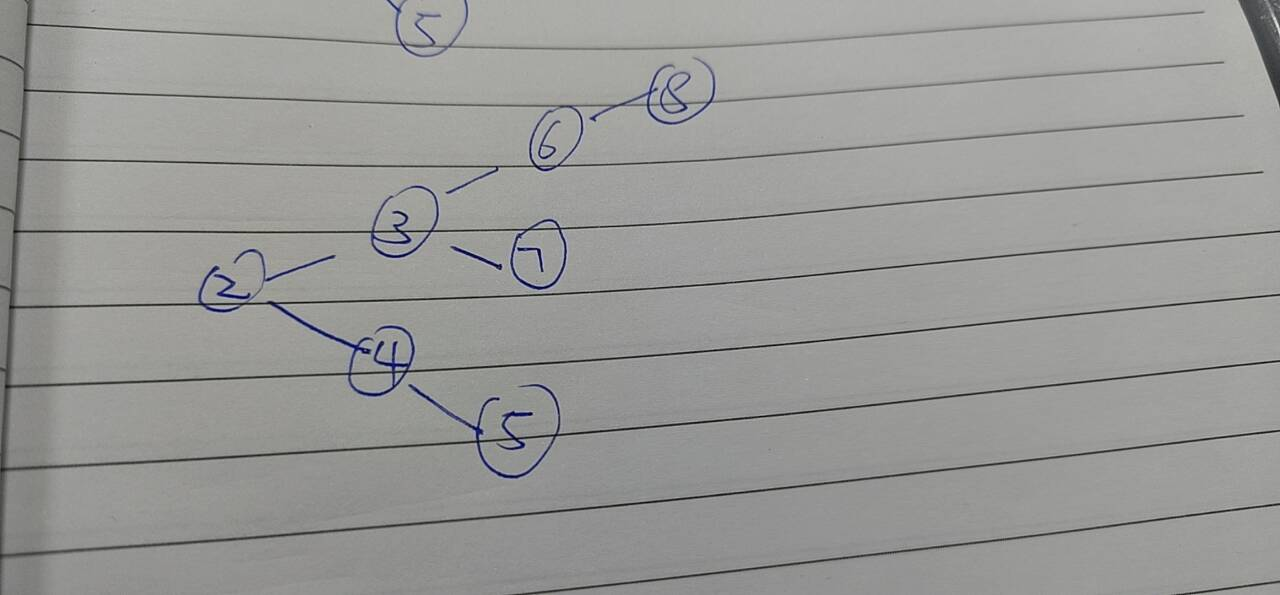 5
8
6
3
7
2
4
5